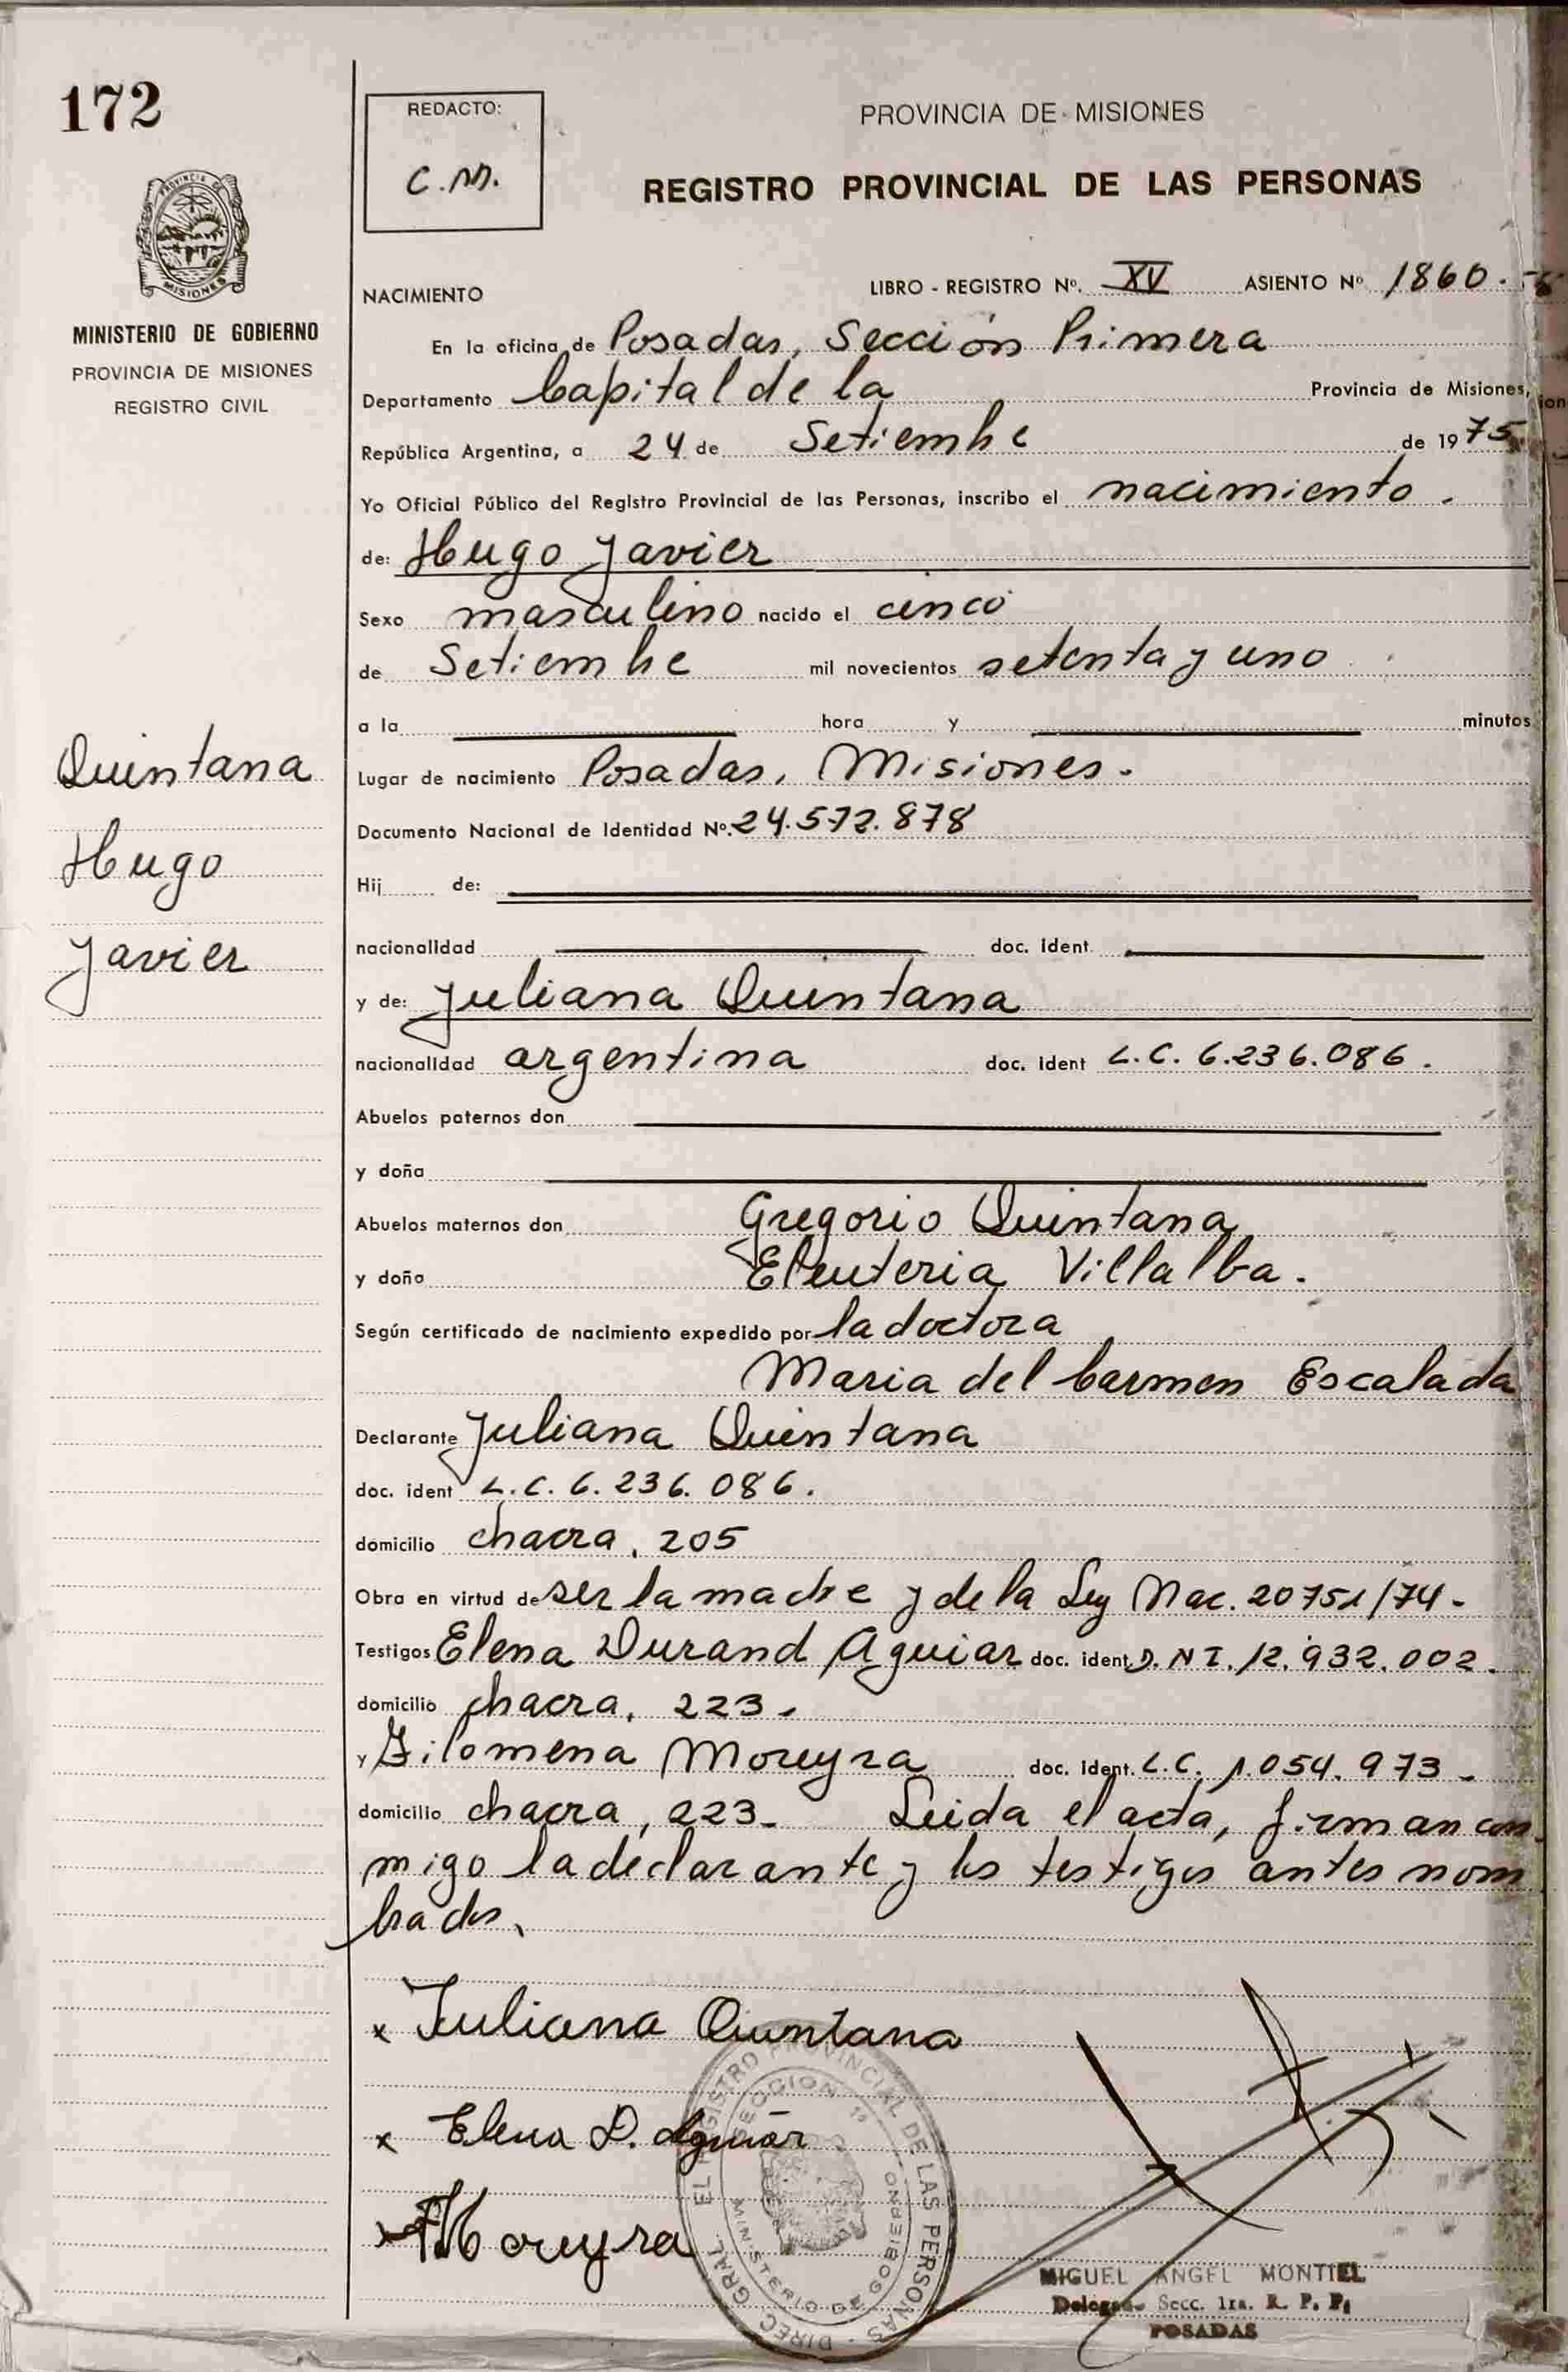 172
REDACTO:
C.M.
PROVINCIA DE MISIONES
REGISTRO PROVINCIAL DE LAS PERSONAS
PROVINCIA DE
MISIONES
MINISTERIO DE GOBIERNO
PROVINCIA DE MISIONES
REGISTRO CIVIL
NACIMIENTO
LIBRO - REGISTRO Nº. XV ASIENTO Nº 1860.
En la oficina de Posadas, Sección Primera
Departamento Capital de la Provincia de Misiones,
República Argentina, a 24 de Setiembre de 1975
Yo Oficial Público del Registro Provincial de las Personas, inscribo el nacimiento.
de: Hugo Javier
Sexo masculino nacido el cinco
de Setiembre mil novecientos setenta y uno
a la hora y minutos
Quintana
Hugo
Javier
Lugar de nacimiento Posadas, Misiones.
Documento Nacional de Identidad Nº. 24.572.878
Hij de:
nacionalidad doc. ident.
y de: Juliana Quintana
nacionalidad argentina doc. ident L.C. 6.236.086.
Abuelos paternos don
y doña
Abuelos maternos don Gregorio Quintana
y doña Eleuteria Villalba.
Según certificado de nacimiento expedido por la doctora
Maria del Carmen Escalada
Declarante Juliana Quintana
doc. ident L.C. 6.236.086.
domicilio chacra, 205
Obra en virtud de ser la madre y de la Ley Nac. 20751/74-
Testigos Elena Durand Aguiar doc. ident. D.N I. 12.932.002.
domicilio chacra, 223-
y Filomena Moreyra doc. ident. L.C. 1.054.973-
domicilio chacra, 223- Leida el acta, firman con
migo la declarante y los testigos antes nom
brados.
x Juliana Quintana
x Elena D. Aguiar
x F Moreyra
DIREC. GRAL. EL REGISTRO PROVINCIAL DE LAS PERSONAS
SECCION 1ª
MINISTERIO DE GOBIERNO
MIGUEL ANGEL MONTIEL
Delegado Secc. 1ra. R. P. P.
POSADAS